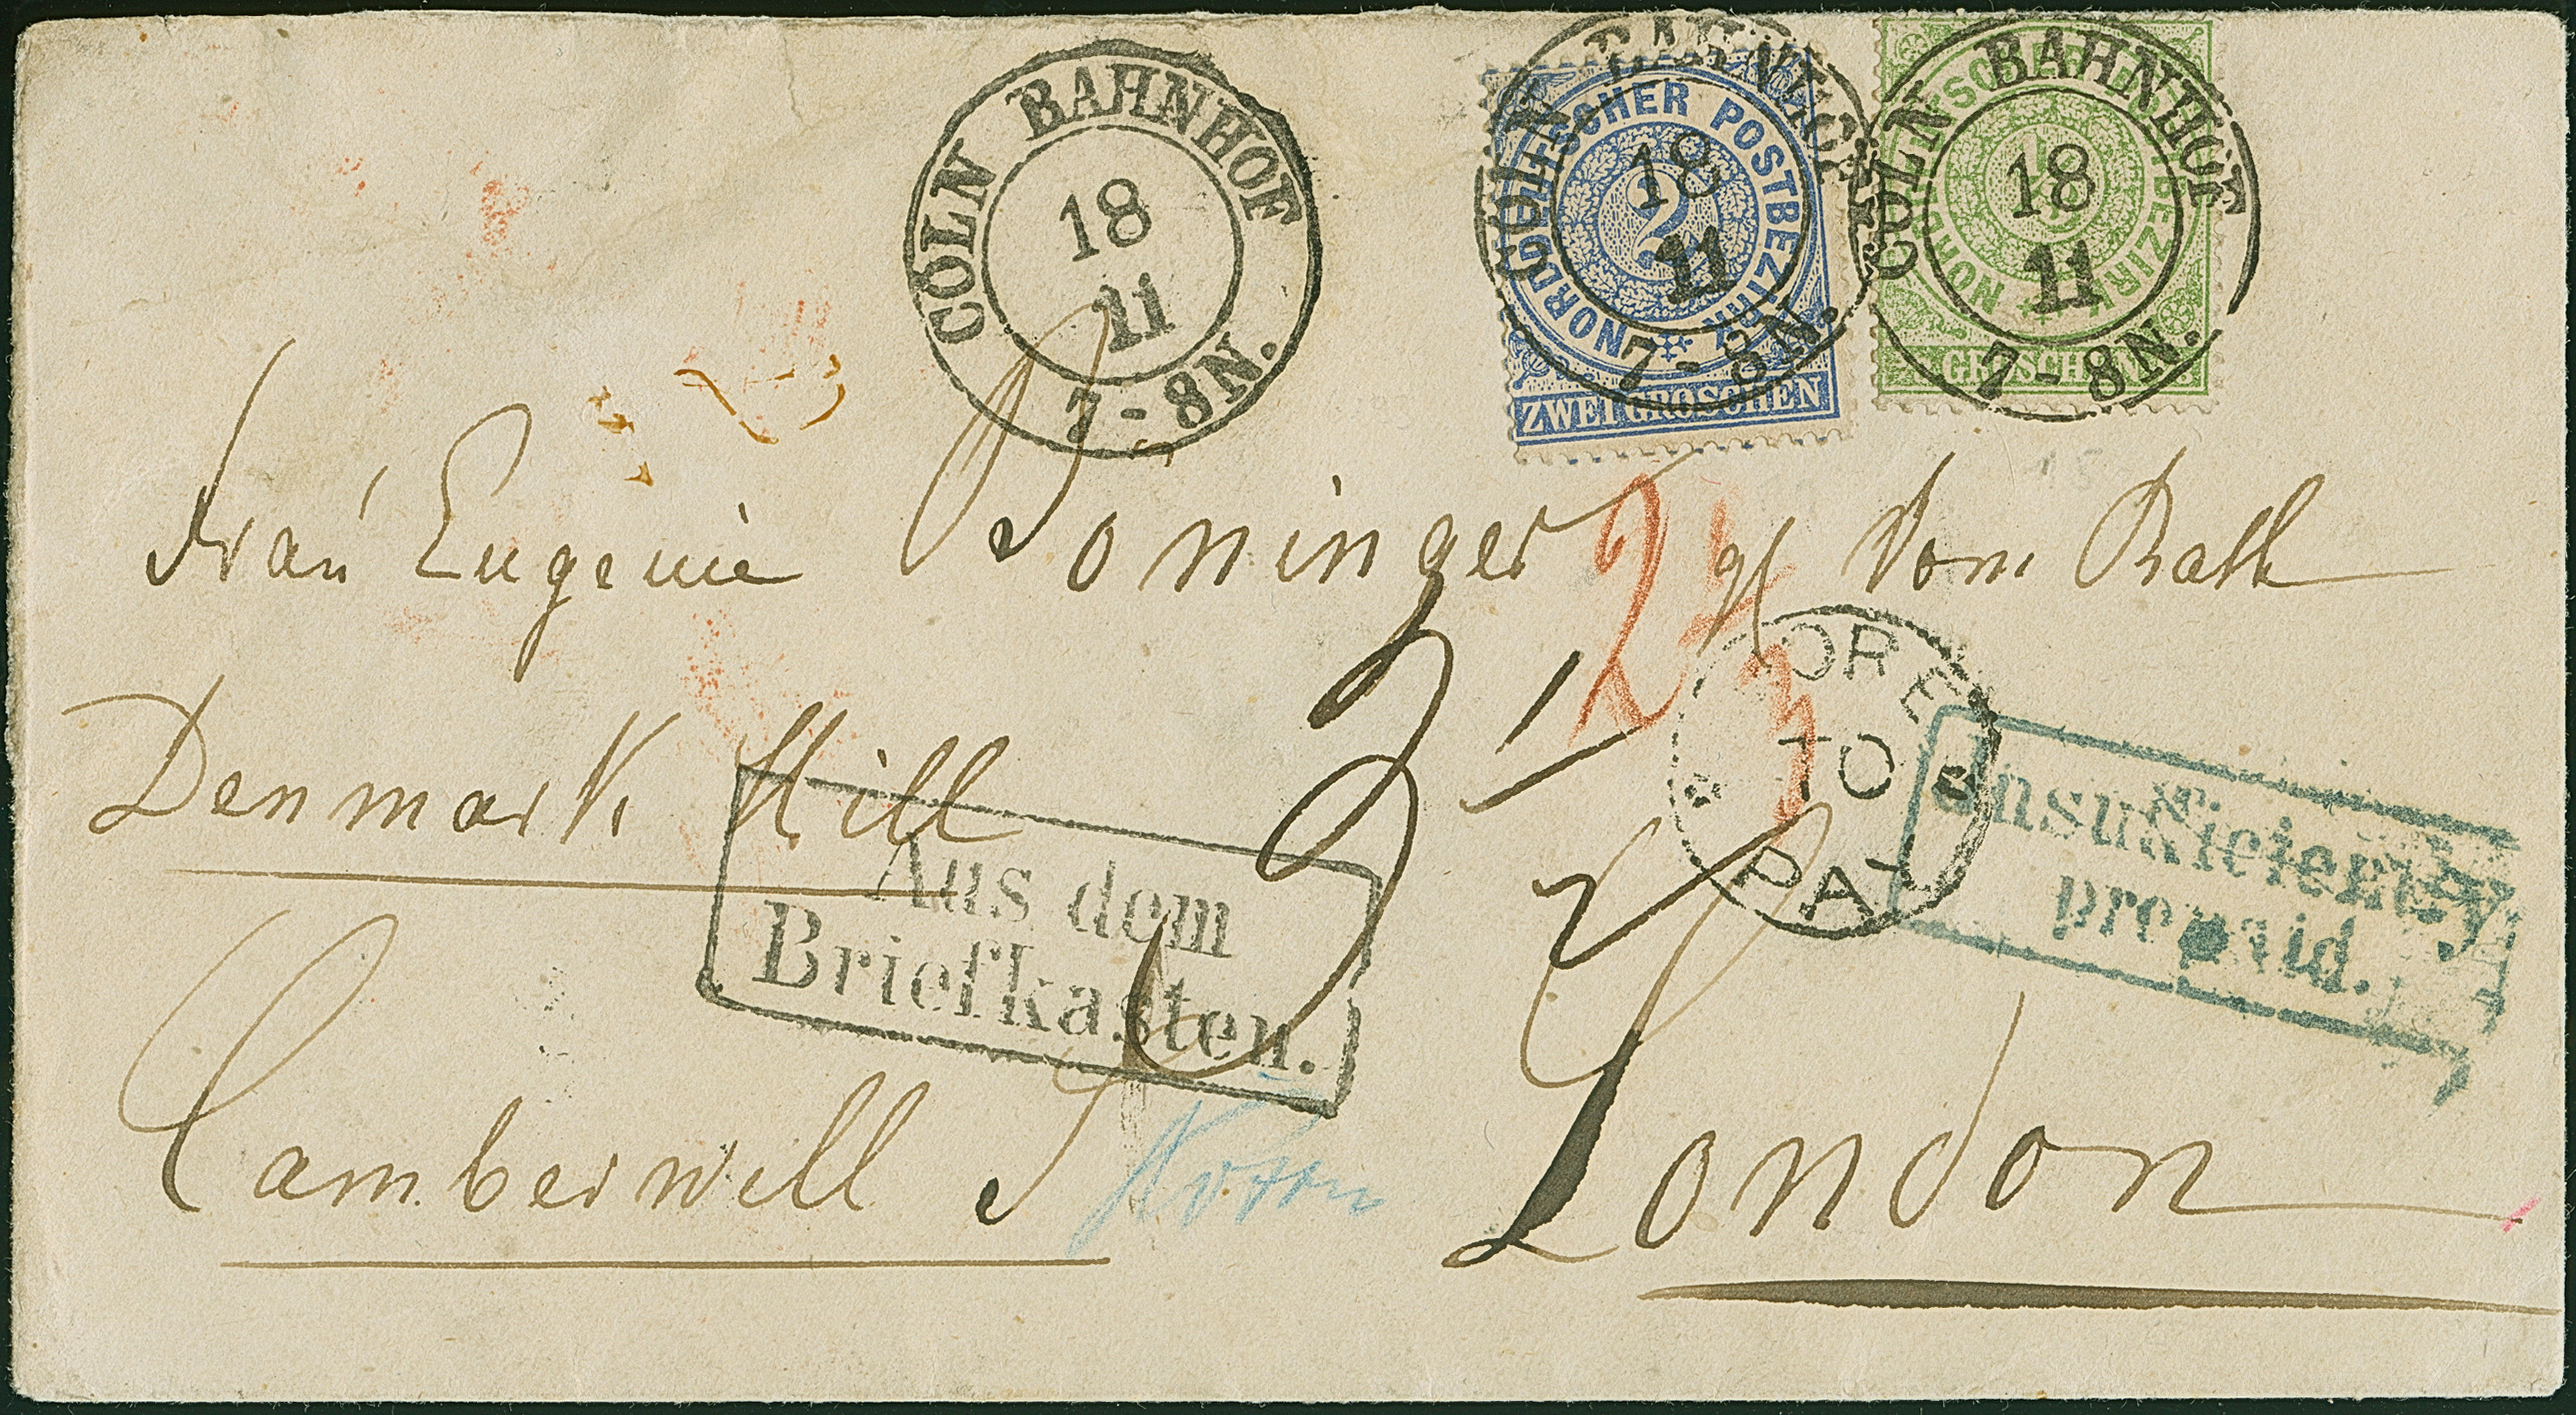 CÖLN BAHNHOF
18
11
7-8N.
CÖLN BAHNHOF
18
11
7-8N.
NORDDEUTSCHER POSTBEZIRK
2
ZWEI GROSCHEN
CÖLN BAHNHOF
18
11
7-8N.
NORDDEUTSCHER POSTBEZIRK
GROSCHEN
Frau Eugenie Böninger
vom Rath
2
MORE
TO
PAY
Denmark Hill
Insufficiently
prepaid.
Aus dem
Briefkasten.
Camberwell S
London